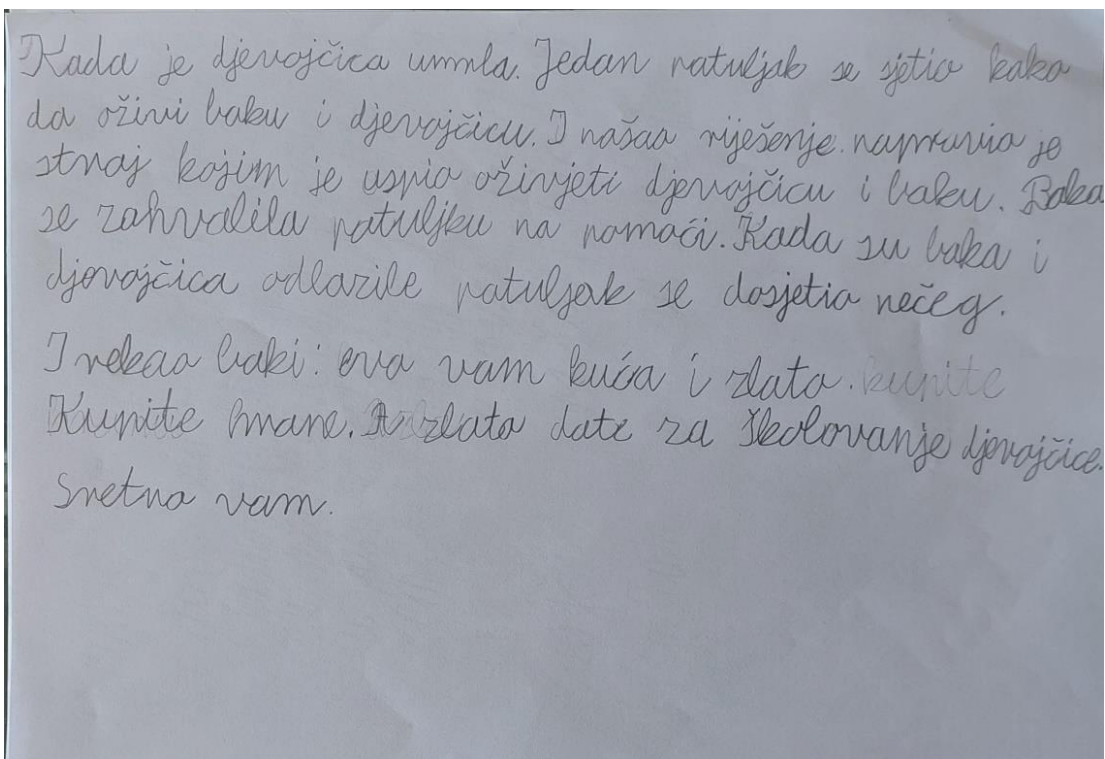 Kada je djevojčica umrla. Jedan patuljak se sjetio kako
da oživi baku i djevojčicu. I našao riješenje. napravio je
stroj kojim je uspio oživjeti djevojčicu i baku. Baka
se zahvalila patuljku na pomoći. Kada su baka i
djevojčica odlazile patuljak se dosjetio nečeg.
I rekao baki: evo vam kuća i zlato. kupite
Kupite hrane. A zlato date za školovanje djevojčice.
Sretno vam.